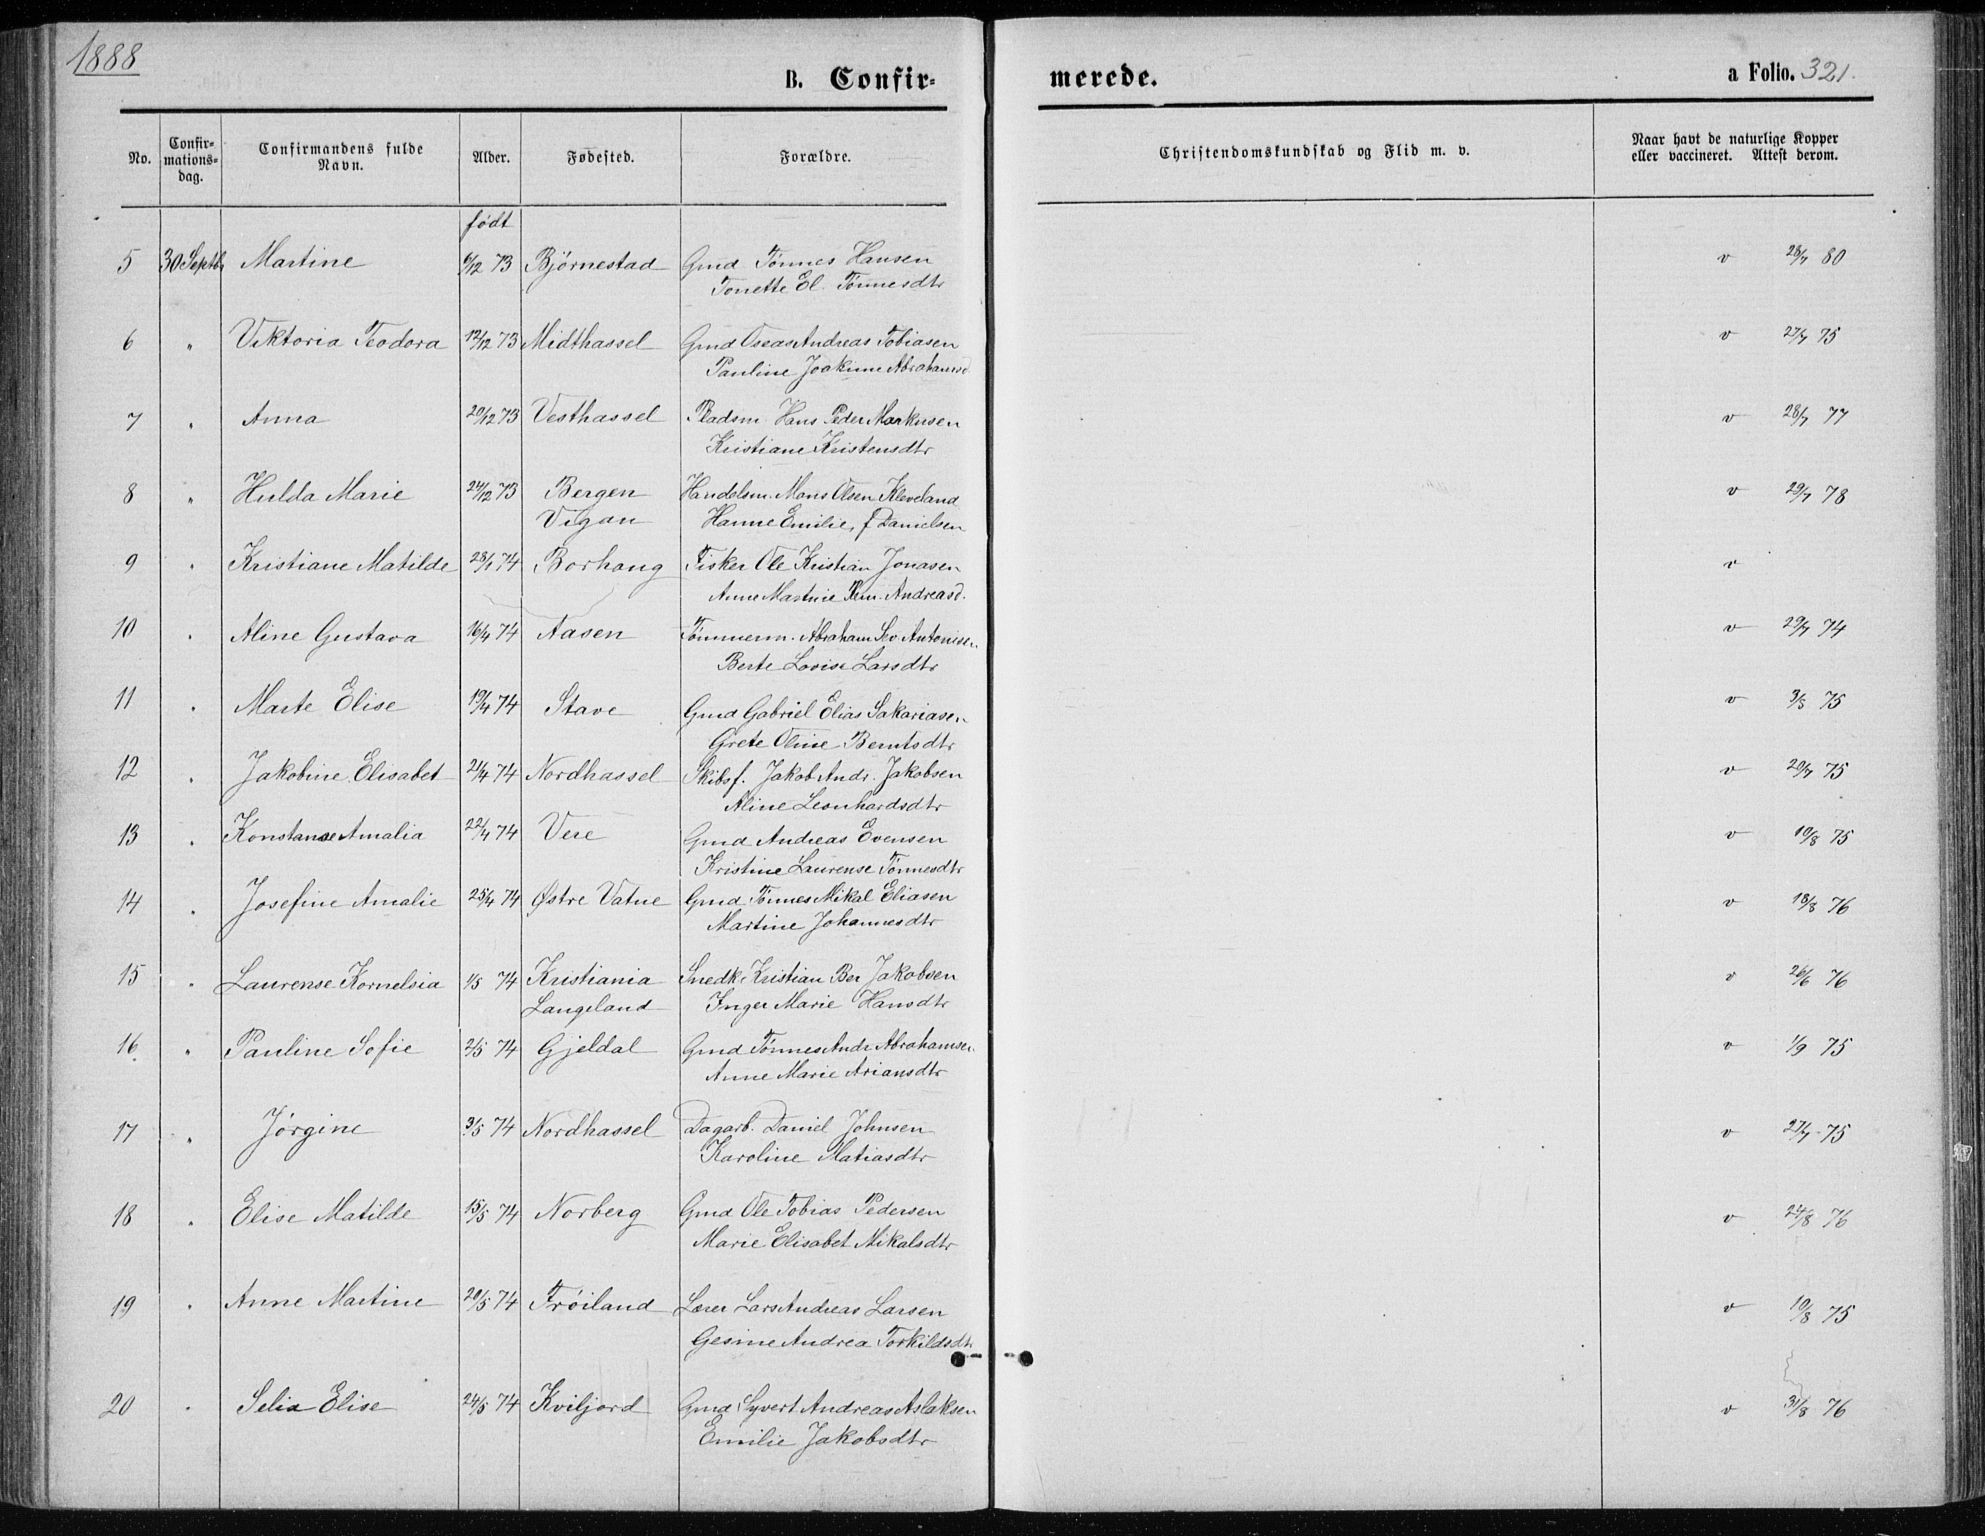 1888
B. Confir-
merede.
a Folio. 321.
No.
Confir-
mations-
dag.
Confirmandens fulde
Navn.
Alder.
Fødested.
Forældre.
Christendomskundskab og Flid m. v.
Naar havt de naturlige Kopper
eller vaccineret. Attest derom.
født
5 30 Septb. Martine 6/12 73 Bjørnestad Gmd Tønnes Hansen v 28/7 80
Tonette El. Tønnesdtr
6 " Viktoria Teodora 12/12 73 Midthassel Gmd Oseas Andreas Tobiasen v 27/7 75
Pauline Joakime Abrahamsd
7 " Anna 20/12 73 Vesthassel Pladsm. Hans Peder Markusen v 28/7 77
Kristiane Kristensdtr
8 " Hulda Marie 24/12 73 Bergen Handelsm. Mons Olsen Kleveland v 29/7 78
Vigan Hanne Emilie, f Danielsen
9 " Kristiane Matilde 28/1 74 Borhaug Fisker Ole Kristian Jonasen v
Anne Martine Andreasd.
10 " Aline Gustava 16/4 74 Aasen Tømmerm. Abraham Sev Antonisen v 29/7 74
Berte Lovise Larsdtr
11 " Marte Elise 19/4 74 Stave Gmd Gabriel Elias Sakariasen v 3/8 75
Grete Oline Berntsdtr
12 " Jakobine Elisabet 21/4 74 Nordhassel Skibsf. Jakob Andr. Jakobsen v 20/7 75
Aline Leonhardsdtr
13 " Konstanse Amalia 22/4 74 Vere Gmd Andreas Evensen v 10/8 75
Kristine Laurense Tønnesdtr
14 " Josefine Amalie 25/4 74 Østre Vatne Gmd Tønnes Mikal Eliasen v 18/8 76
Martine Johannesdtr
15 " Laurense Kornelsia 1/5 74 Kristiania Snedk. Kristian Ber Jakobsen v 26/6 76
Langeland Inger Marie Hansdtr
16 " Pauline Sofie 2/5 74 Gjeldal Gmd Tønnes Andr Abrahamsen v 1/9 75
Anne Marie Ariansdtr
17 " Jørgine 3/5 74 Nordhassel Dagarb. Daniel Johnsen v 27/7 75
Karoline Matiasdtr
18 " Elise Matilde 15/5 74 Norberg Gmd Ole Tobias Pedersen v 24/8 76
Marie Elisabet Mikalsdtr
19 " Anne Martine 20/5 74 Frøiland Lærer Lars Andreas Larsen v 10/8 75
Gesine Andrea Torkildsdtr
20 " Selia Elise 24/5 74 Kviljord Gmd Syvert Andreas Aslaksen v 31/8 76
Emilie Jakobsdtr